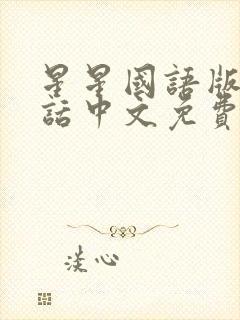 星星國語版
話中文免費
淡心